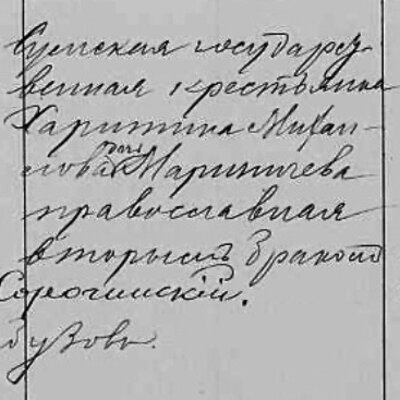 Сумская государст
венная крестьянка
Харитина Михаи-
лова Мариничева
православная
вторымъ бракомъ
Сорочинскій.
Бузовъ.